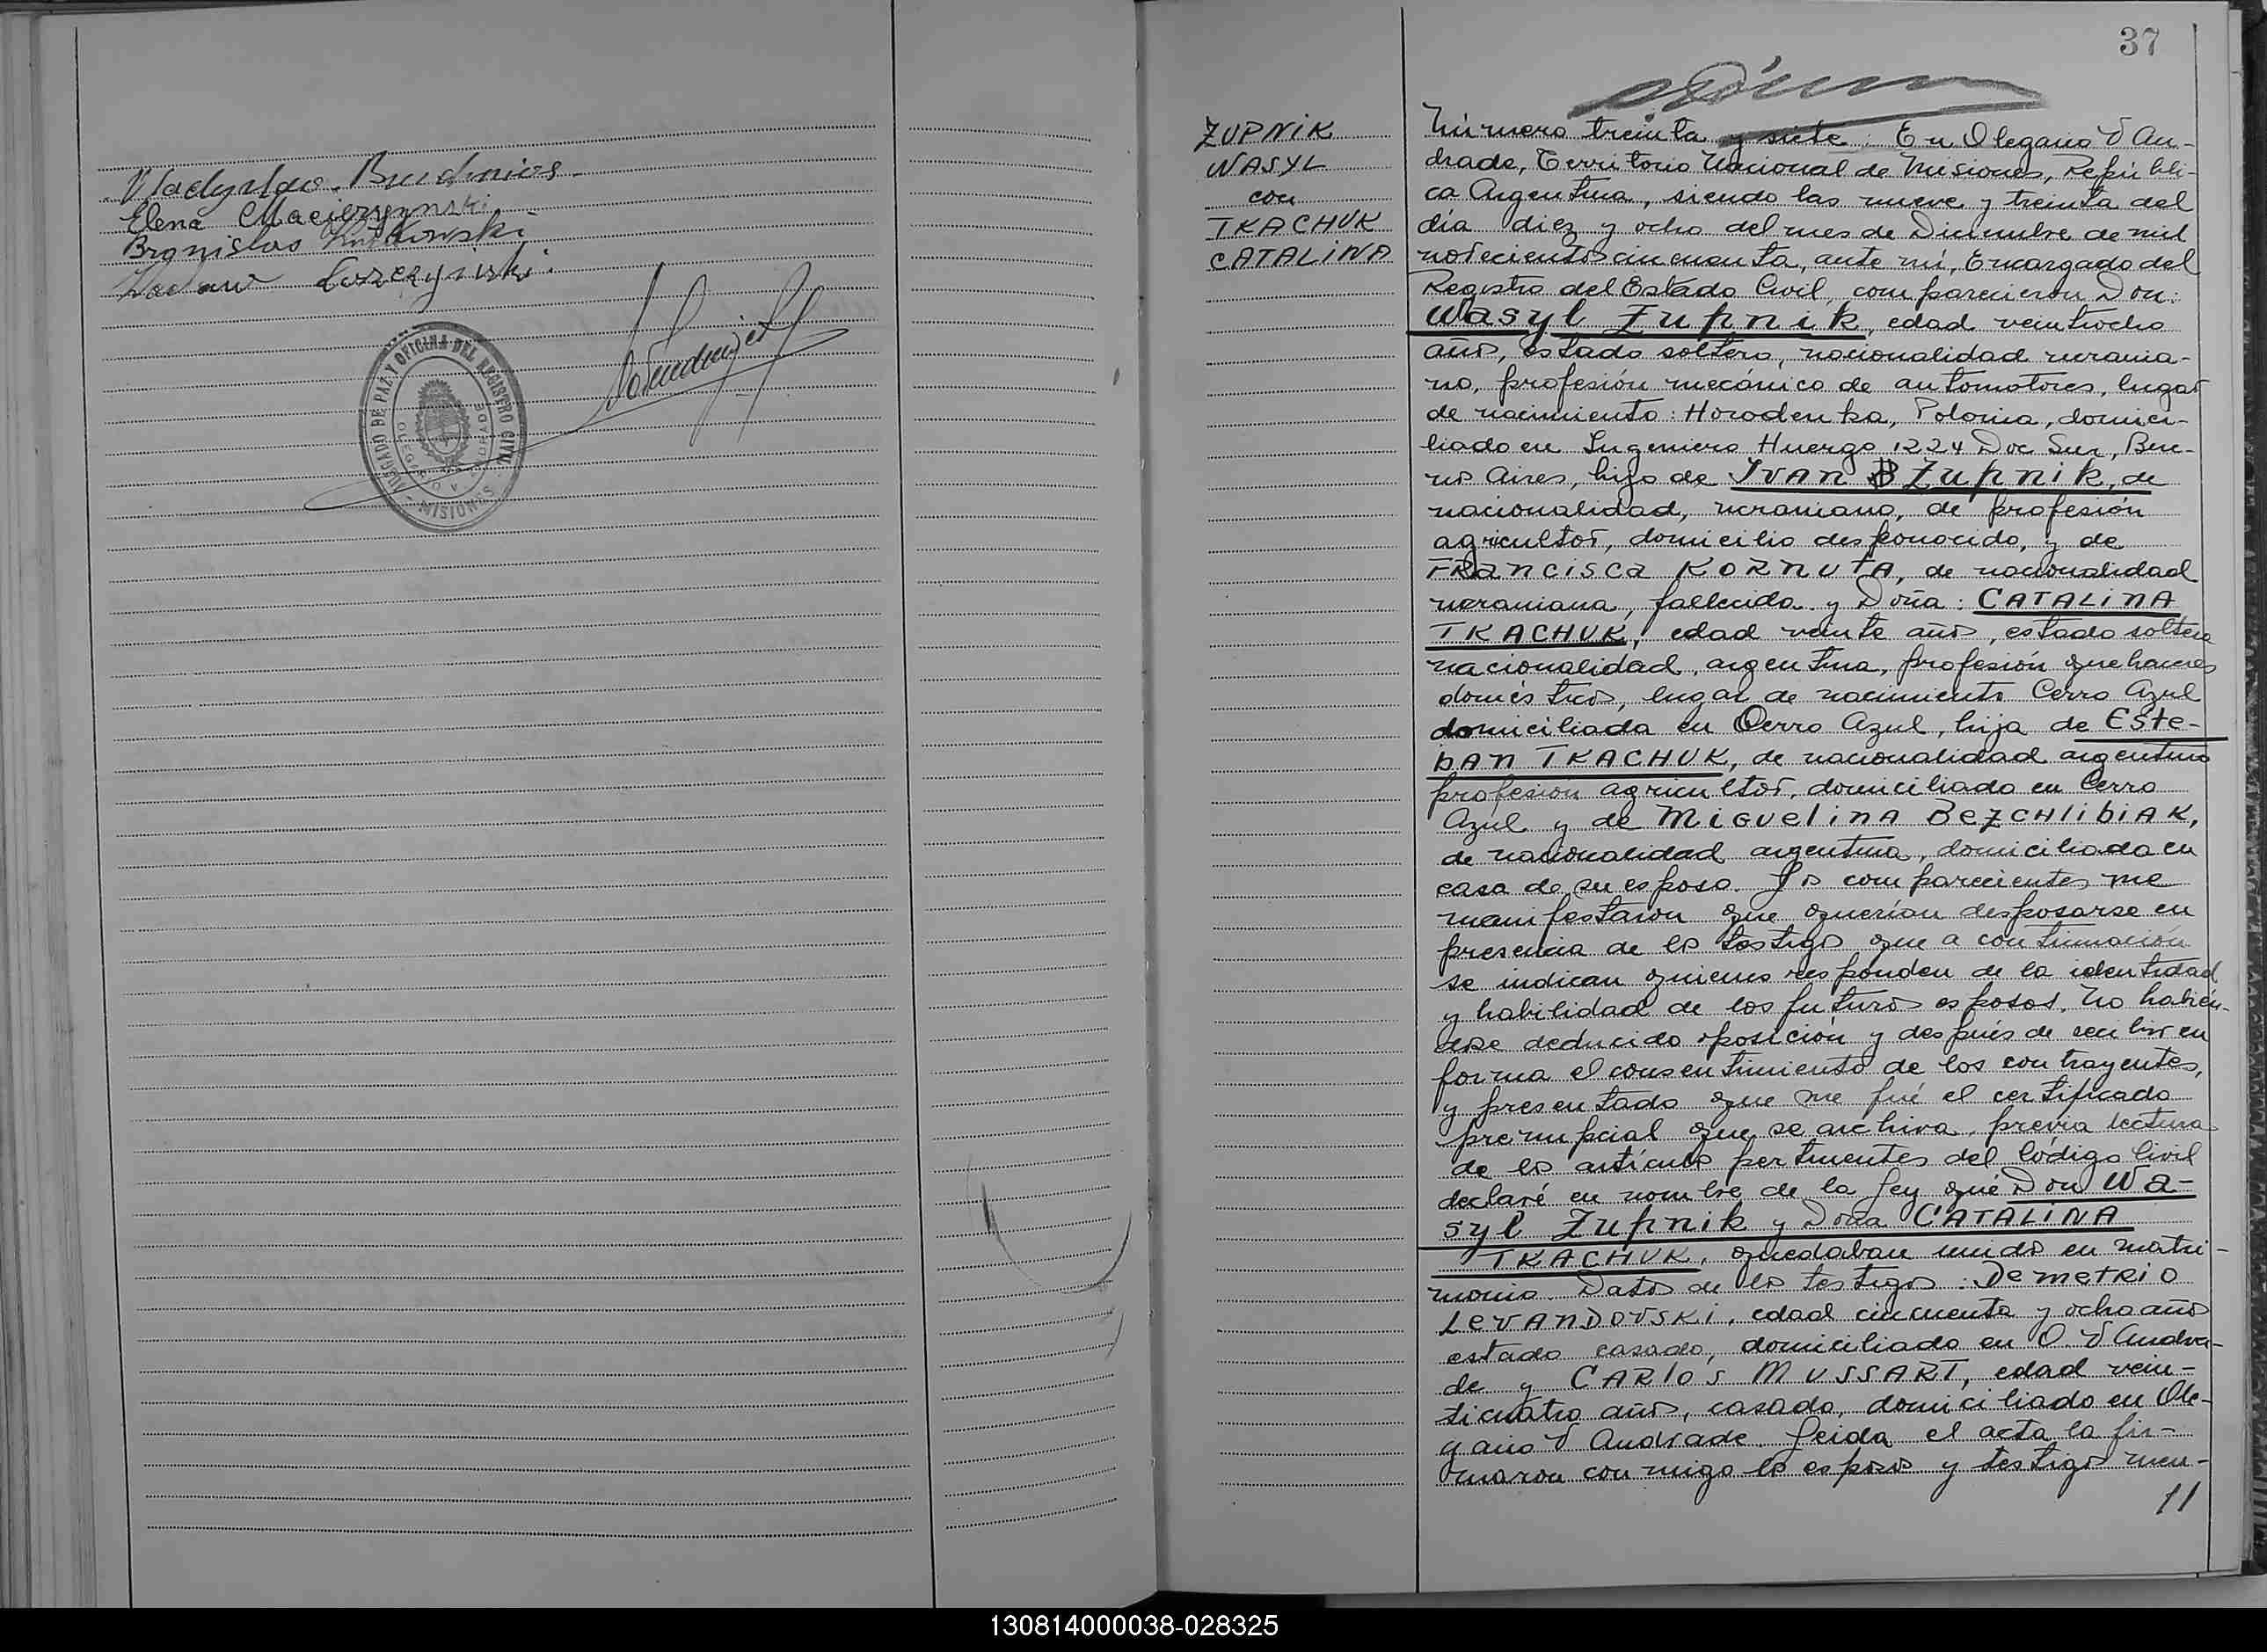 Elena Macierzynski
Bronislas
JUZGADO DE PAZ Y OFICINA DEL REGISTRO CIVIL
OLEGARIO V. ANDRADE
- MISIONES -
37
ZUPNIK
WASYL
con
TKACHUK
CATALINA
Número treinta y siete: En Olegario V An-
drade, Territorio Nacional de Misiones, Repúbli-
ca Argentina, siendo las nueve y treinta del
día diez y ocho del mes de Diciembre de mil
novecientos cincuenta, ante mí, Encargado del
Registro del Estado Civil, comparecieron Don:
Wasyl Zupnik, edad veintiocho
años, estado soltero, nacionalidad ucrania-
no, profesión mecánico de automotores, lugar
de nacimiento: Horodenka, Polonia, domici-
liado en Ingeniero Huergo 1224 Doc Sur, Bue-
nos Aires, hijo de IVAN ZUPNIK, de
nacionalidad, ucraniano, de profesión
agricultor, domicilio desconocido, y de
FRANCISCA KORNUTA, de nacionalidad
ucraniana, fallecida y Doña: CATALINA
TKACHUK, edad veinte años, estado soltera
nacionalidad argentina, profesión quehaceres
domésticos, lugar de nacimiento Cerro Azul
domiciliada en Cerro Azul, hija de Este-
bAN TKACHUK, de nacionalidad argentino
profesión agricultor, domiciliado en Cerro
Azul y de MIGUELINA BEZCHLIBIAK,
de nacionalidad argentina, domiciliada en
casa de su esposo. Los comparecientes me
manifestaron que querían desposarse en
presencia de los testigos que a continuación
se indican quienes responden de la identidad
y habilidad de los futuros esposos. No habién-
dose deducido oposición y después de recibir en
forma el consentimiento de los contrayentes,
y presentado que me fué el certificado
prenupcial que se archiva, previa lectura
de los artículos pertinentes del Código Civil
declaré en nombre de la Ley que Don Wa-
syl Zupnik y Doña CATALINA
TKACHUK, quedaban unidos en matri-
monio. Datos de los testigos: DEMETRIO
LEVANDOVSKI, edad cincuenta y ocho años
estado casado, domiciliado en O. V Andra-
de y CARLOS MUSSART, edad vein-
ticuatro años, casado, domiciliado en Ole-
gario V Andrade. Leida el acta la fir-
maron conmigo los esposos y testigos men-
//
130814000038-028325